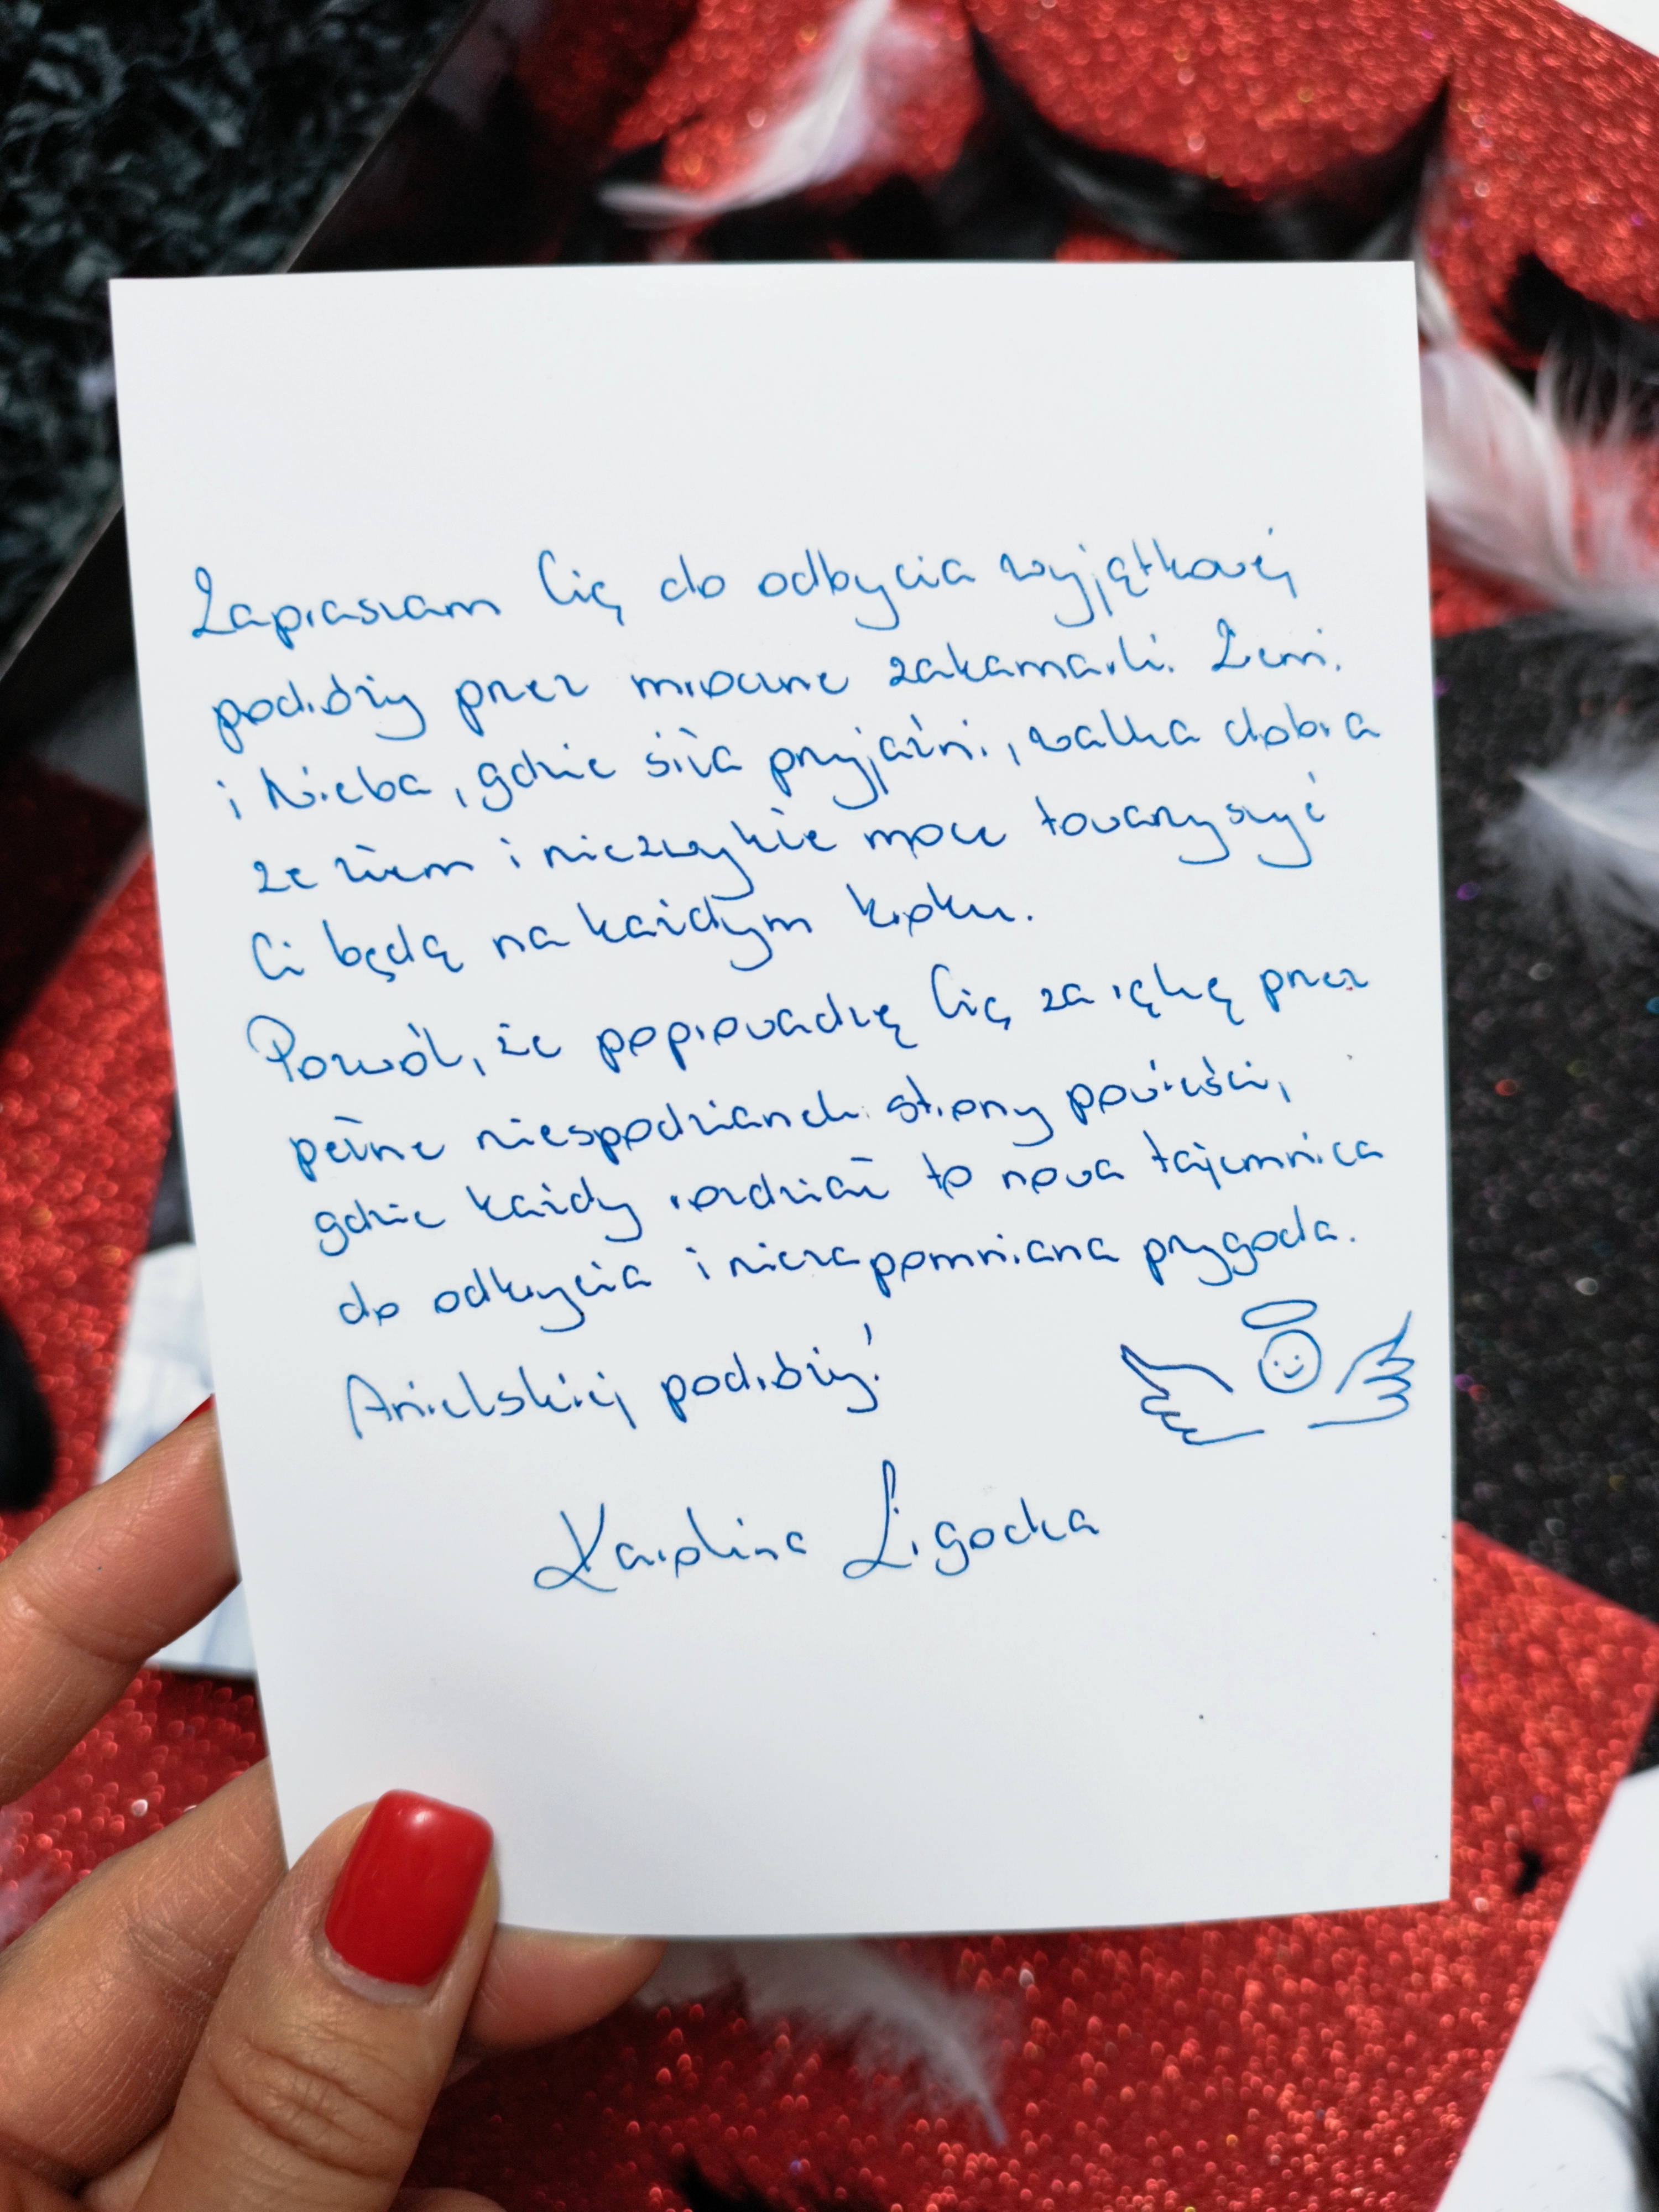 Zapraszam Cię do odbycia wyjątkowej
podróży przez mroczne zakamarki Ziemi
i Nieba, gdzie siła przyjaźni, walka dobra
ze złem i niezwykłe moce towarzyszyć
Ci będą na każdym kroku.
Pozwól, że poprowadzę Cię za rękę przez
pełne niespodzianek strony powieści,
gdzie każdy rozdział to nowa tajemnica
do odkrycia i niezapomniana przygoda.
Anielskiej podróży!
Karolina Ligocka